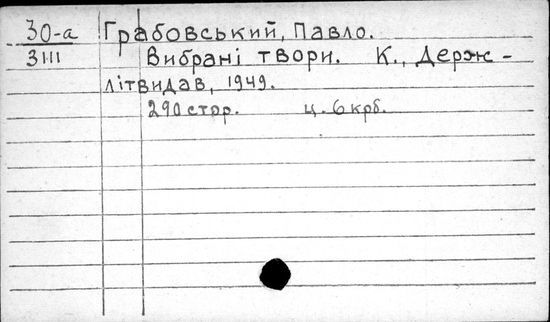 30-а Грабовський, Павло.
3111 Вибрані твори. К., Держ-
літвидав, 1949.
290 стор. ц. 6 крб.